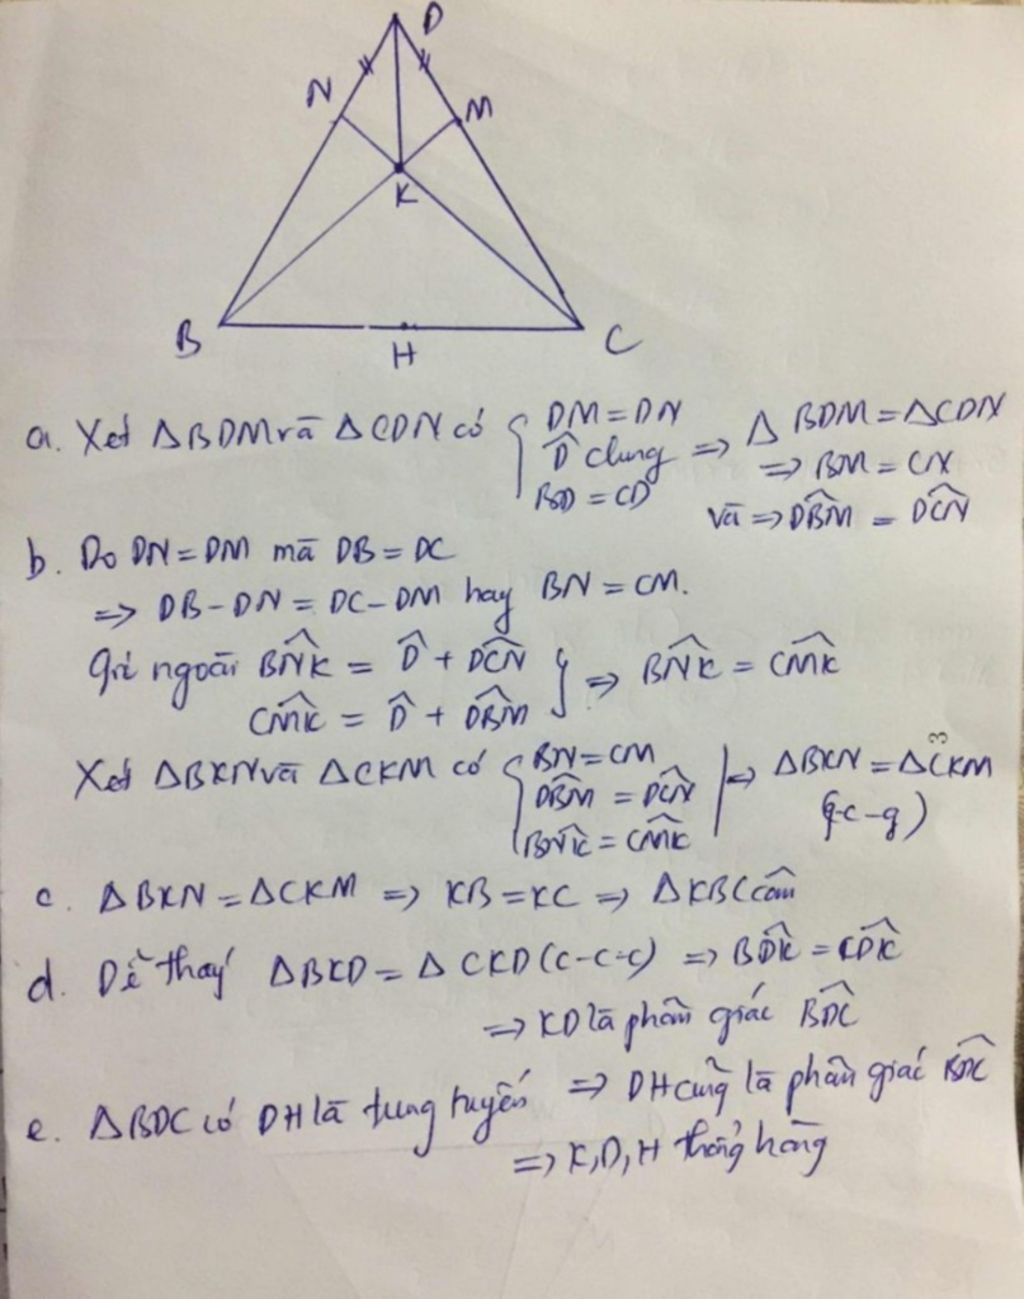 D
N
M
K
B
H
C
a. Xét ΔBDM và ΔCDN có { DM = DN
D̂ chung ⇒ Δ BDM = ΔCDN
BD = CD ⇒ BM = CN
và ⇒ DBM̂ = DCN̂
b. Do DN = DM mà DB = DC
⇒ DB - DN = DC - DM hay BN = CM.
Góc ngoài BNK̂ = D̂ + DCN̂ } ⇒ BNK̂ = CMK̂
CMK̂ = D̂ + DBM̂
Xét ΔBKN và ΔCKM có { BN = CM
DBM̂ = DCN̂ ⇒ ΔBKN = ΔCKM
BNK̂ = CMK̂ (g-c-g)
c. ΔBKN = ΔCKM ⇒ KB = KC ⇒ ΔKBC cân
d. Dễ thấy ΔBKD = Δ CKD (c-c-c) ⇒ BDK̂ = CDK̂
⇒ KD là phân giác BDĈ
e. ΔBDC có DH là trung tuyến ⇒ DH cũng là phân giác BDĈ
⇒ K, D, H thẳng hàng